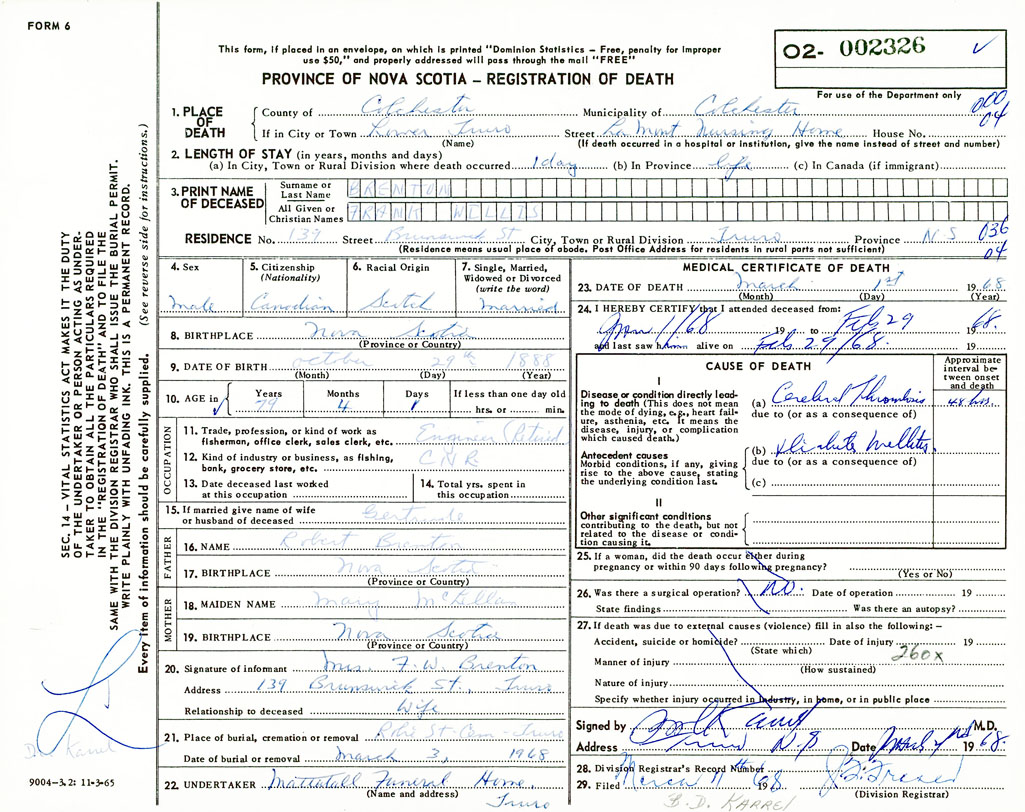 FORM 6
This form, if placed in an envelope, on which is printed "Dominion Statistics – Free, penalty for improper
use $50," and properly addressed will pass through the mail "FREE"
PROVINCE OF NOVA SCOTIA – REGISTRATION OF DEATH
02- 002326
For use of the Department only
000
04
1. PLACE OF DEATH County of Colchester Municipality of Colchester
If in City or Town Lower Truro Street La Mont Nursing Home House No.
(Name) (If death occurred in a hospital or institution, give the name instead of street and number)
2. LENGTH OF STAY (in years, months and days)
(a) In City, Town or Rural Division where death occurred 1 day (b) In Province Life (c) In Canada (if immigrant)
3. PRINT NAME OF DECEASED
Surname or Last Name BRENTON
All Given or Christian Names FRANK WILLIS
RESIDENCE No. 139 Street Brunswick St City, Town or Rural Division Truro Province N S
(Residence means usual place of abode. Post Office Address for residents in rural parts not sufficient)
036
04
4. Sex
male
5. Citizenship (Nationality)
Canadian
6. Racial Origin
Scotch
7. Single, Married, Widowed or Divorced (write the word)
married
8. BIRTHPLACE Nova Scotia
(Province or Country)
9. DATE OF BIRTH october 29th 1888
(Month) (Day) (Year)
10. AGE in Years Months Days If less than one day old
79 4 1 hrs. or min.
OCCUPATION
11. Trade, profession, or kind of work as
fisherman, office clerk, sales clerk, etc. Engineer (Retired
12. Kind of industry or business, as fishing,
bank, grocery store, etc. CNR
13. Date deceased last worked
at this occupation
14. Total yrs. spent in
this occupation
15. If married give name of wife
or husband of deceased Gertrude
FATHER
16. NAME Robert Brenton
17. BIRTHPLACE Nova Scotia
(Province or Country)
MOTHER
18. MAIDEN NAME Mary McKellar
19. BIRTHPLACE Nova Scotia
(Province or Country)
20. Signature of informant Mrs. F. W. Brenton
Address 139 Brunswick St., Truro
Relationship to deceased Wife
21. Place of burial, cremation or removal St. Cem. Truro
Date of burial or removal March 3, 1968
22. UNDERTAKER Mattatall Funeral Home,
(Name and address) Truro
MEDICAL CERTIFICATE OF DEATH
23. DATE OF DEATH March 1st 1968
(Month) (Day) (Year)
24. I HEREBY CERTIFY that I attended deceased from:
1/68 19 to Feb 29 1968.
and last saw him alive on Feb 29/68 19
CAUSE OF DEATH
Approximate interval between onset and death
I
Disease or condition directly leading to death (This does not mean
the mode of dying, e.g., heart failure, asthenia, etc. It means the
disease, injury, or complication
which caused death.)
(a) Cerebral Thrombosis 48 hrs.
due to (or as a consequence of)
Antecedent causes
Morbid conditions, if any, giving
rise to the above cause, stating
the underlying condition last.
(b) Diabetes Mellitus.
due to (or as a consequence of)
(c)
II
Other significant conditions
contributing to the death, but not
related to the disease or condition causing it.
25. If a woman, did the death occur either during
pregnancy or within 90 days following pregnancy?
(Yes or No)
26. Was there a surgical operation? No. Date of operation 19
State findings Was there an autopsy?
27. If death was due to external causes (violence) fill in also the following: –
Accident, suicide or homicide? Date of injury 19
(State which)
260x
Manner of injury
(How sustained)
Nature of injury
Specify whether injury occurred in industry, in home, or in public place
Signed by M.D.
Address Truro N.S Date 1968.
28. Division Registrar's Record Number
29. Filed March 11 1968
(Division Registrar)
B. D. KARREL
SEC. 14 – VITAL STATISTICS ACT MAKES IT THE DUTY
OF THE UNDERTAKER OR PERSON ACTING AS UNDER-
TAKER TO OBTAIN ALL THE PARTICULARS REQUIRED
IN THE "REGISTRATION OF DEATH" AND TO FILE THE
SAME WITH THE DIVISION REGISTRAR WHO SHALL ISSUE THE BURIAL PERMIT.
WRITE PLAINLY WITH UNFADING INK. THIS IS A PERMANENT RECORD.
Every item of information should be carefully supplied. (See reverse side for instructions.)
D. Karrel
9004-3.2: 11-3-65